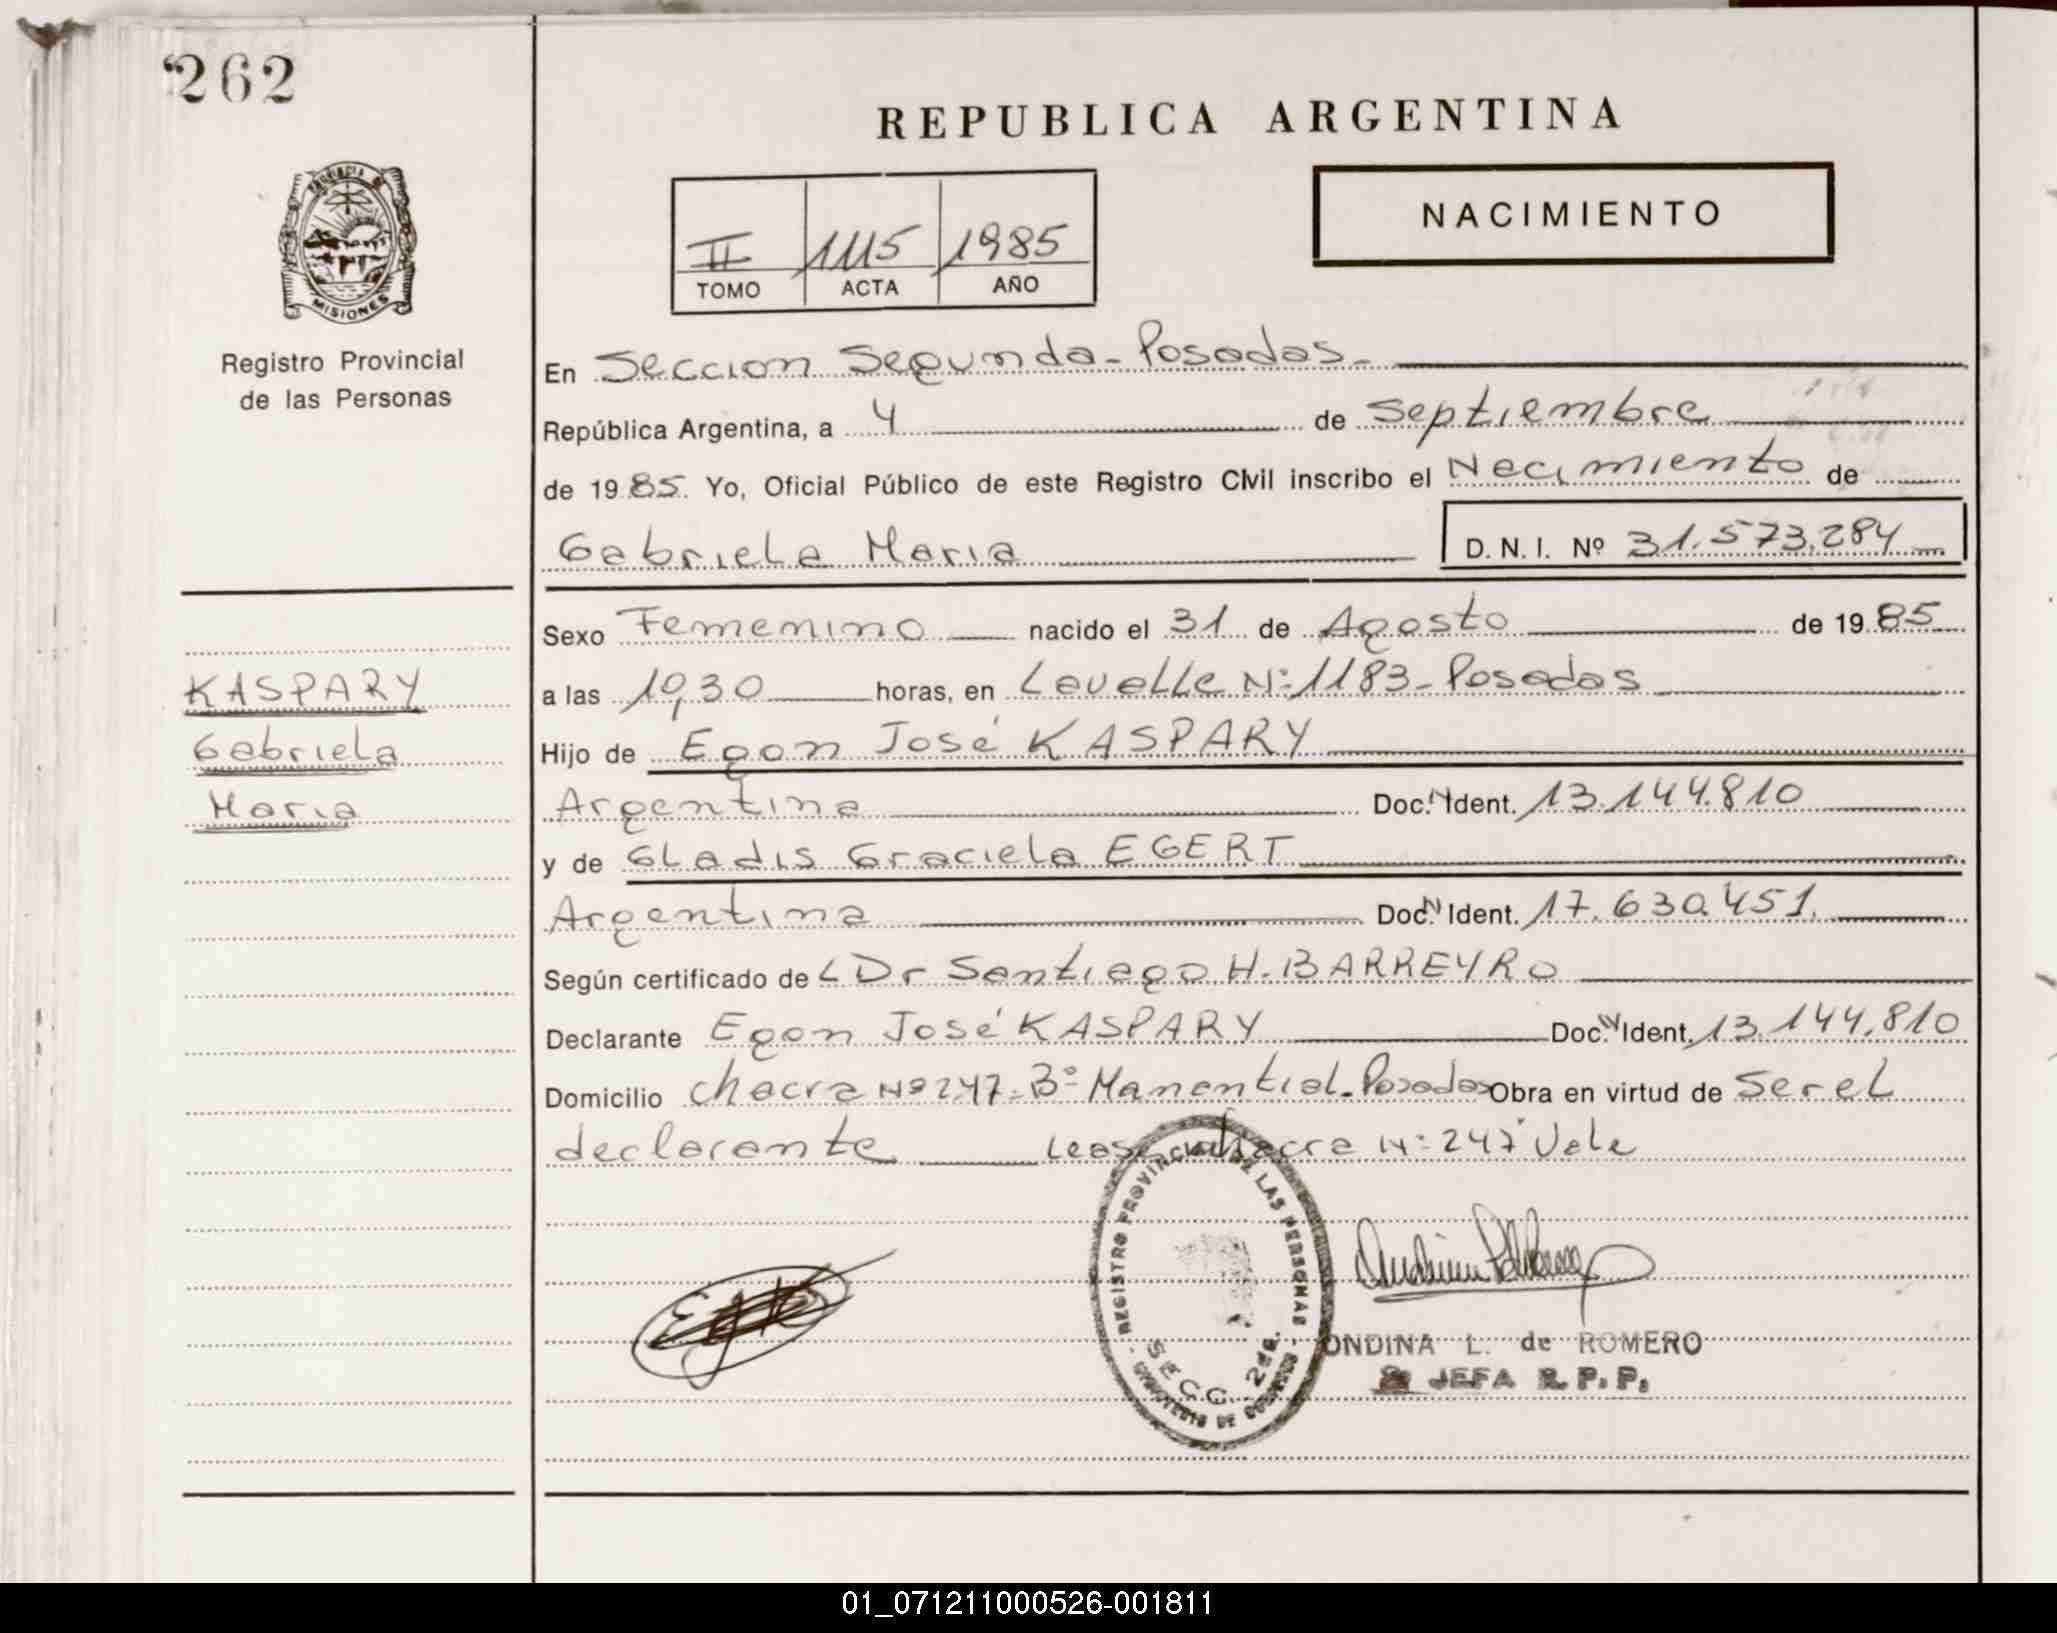 262
REPUBLICA ARGENTINA
PROVINCIA DE MISIONES
Registro Provincial
de las Personas
II 1115 1985
TOMO ACTA AÑO
NACIMIENTO
En Seccion Segunda - Posadas -
República Argentina, a 4 de Septiembre
de 1985. Yo, Oficial Público de este Registro Civil inscribo el Nacimiento de
Gabriela Maria D. N. I. Nº 31.573.284
Sexo Femenino nacido el 31 de Agosto de 1985
a las 19,30 horas, en Lavalle Nº 1183 - Posadas
Hijo de Egon José KASPARY
Argentina Doc. N Ident. 13.144.810
y de Gladis Graciela EGERT
Argentina Doc. N Ident. 17.630.451.
Según certificado de L Dr Santiago H. BARREYRO
Declarante Egon José KASPARY Doc. N Ident. 13.144.810
Domicilio Chacra Nº 247 - Bº Manantial - Posadas Obra en virtud de Ser el
declarante Lease chacra Nº 247 Vale
KASPARY
Gabriela
Maria
REGISTRO PROVINCIAL DE LAS PERSONAS
SECC. 2da.
ONDINA L. de ROMERO
JEFA R. P. P.
01_071211000526-001811